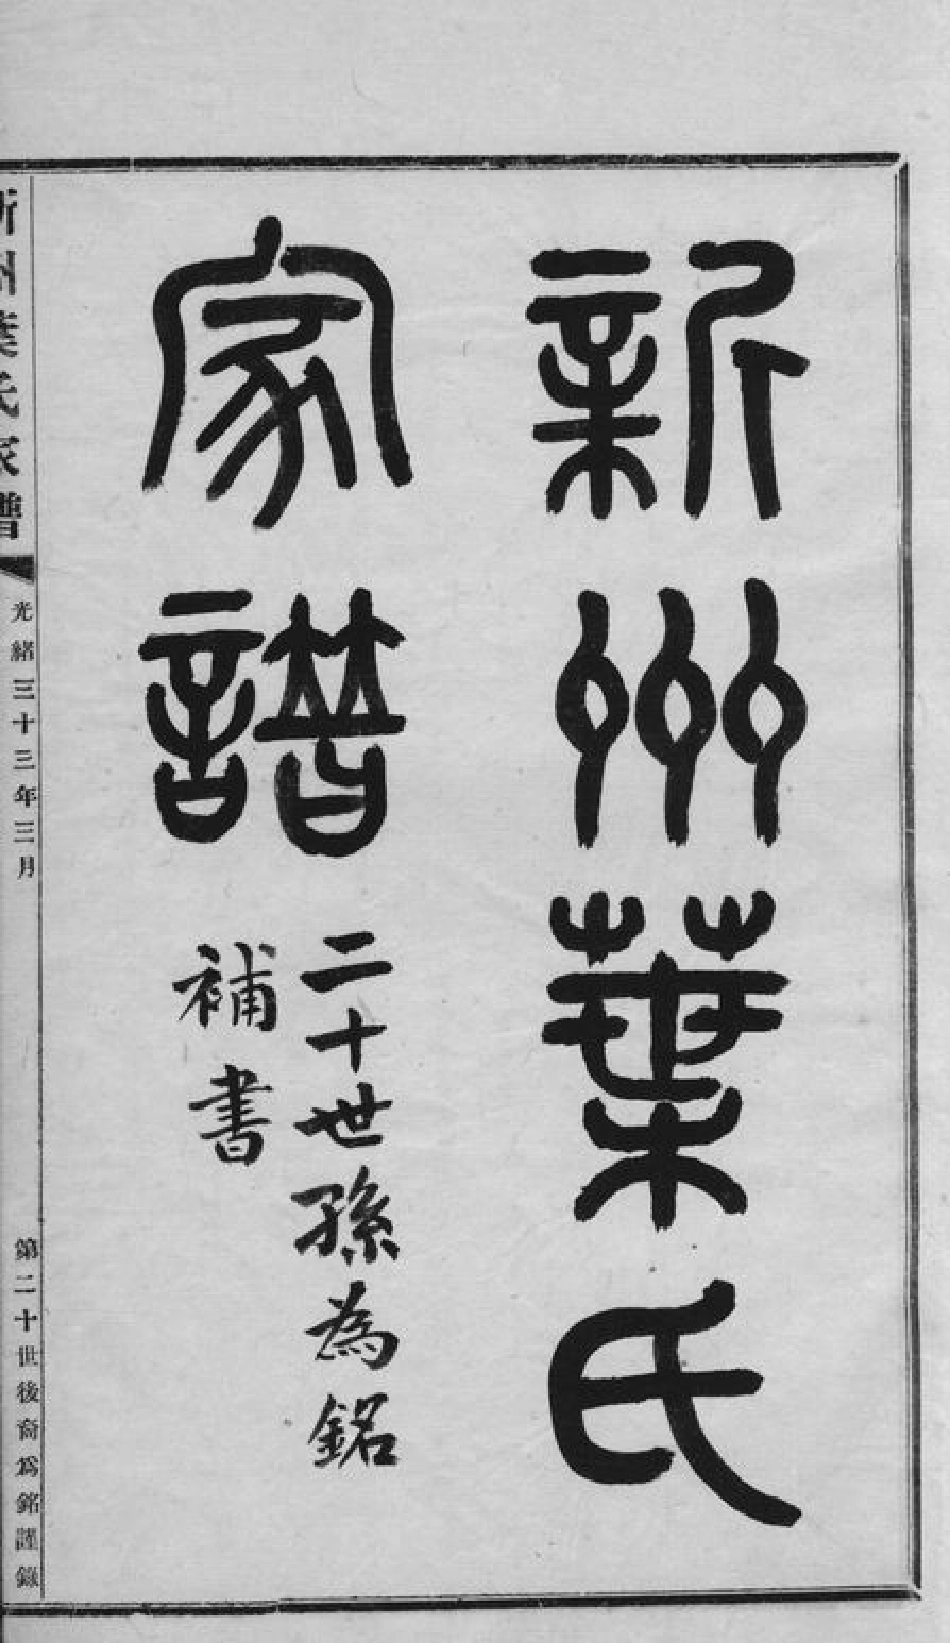 新州葉氏
家譜
二十世孫為銘
補書
新州葉氏家譜
光緒三十三年三月
第二十世後裔爲銘謹錄